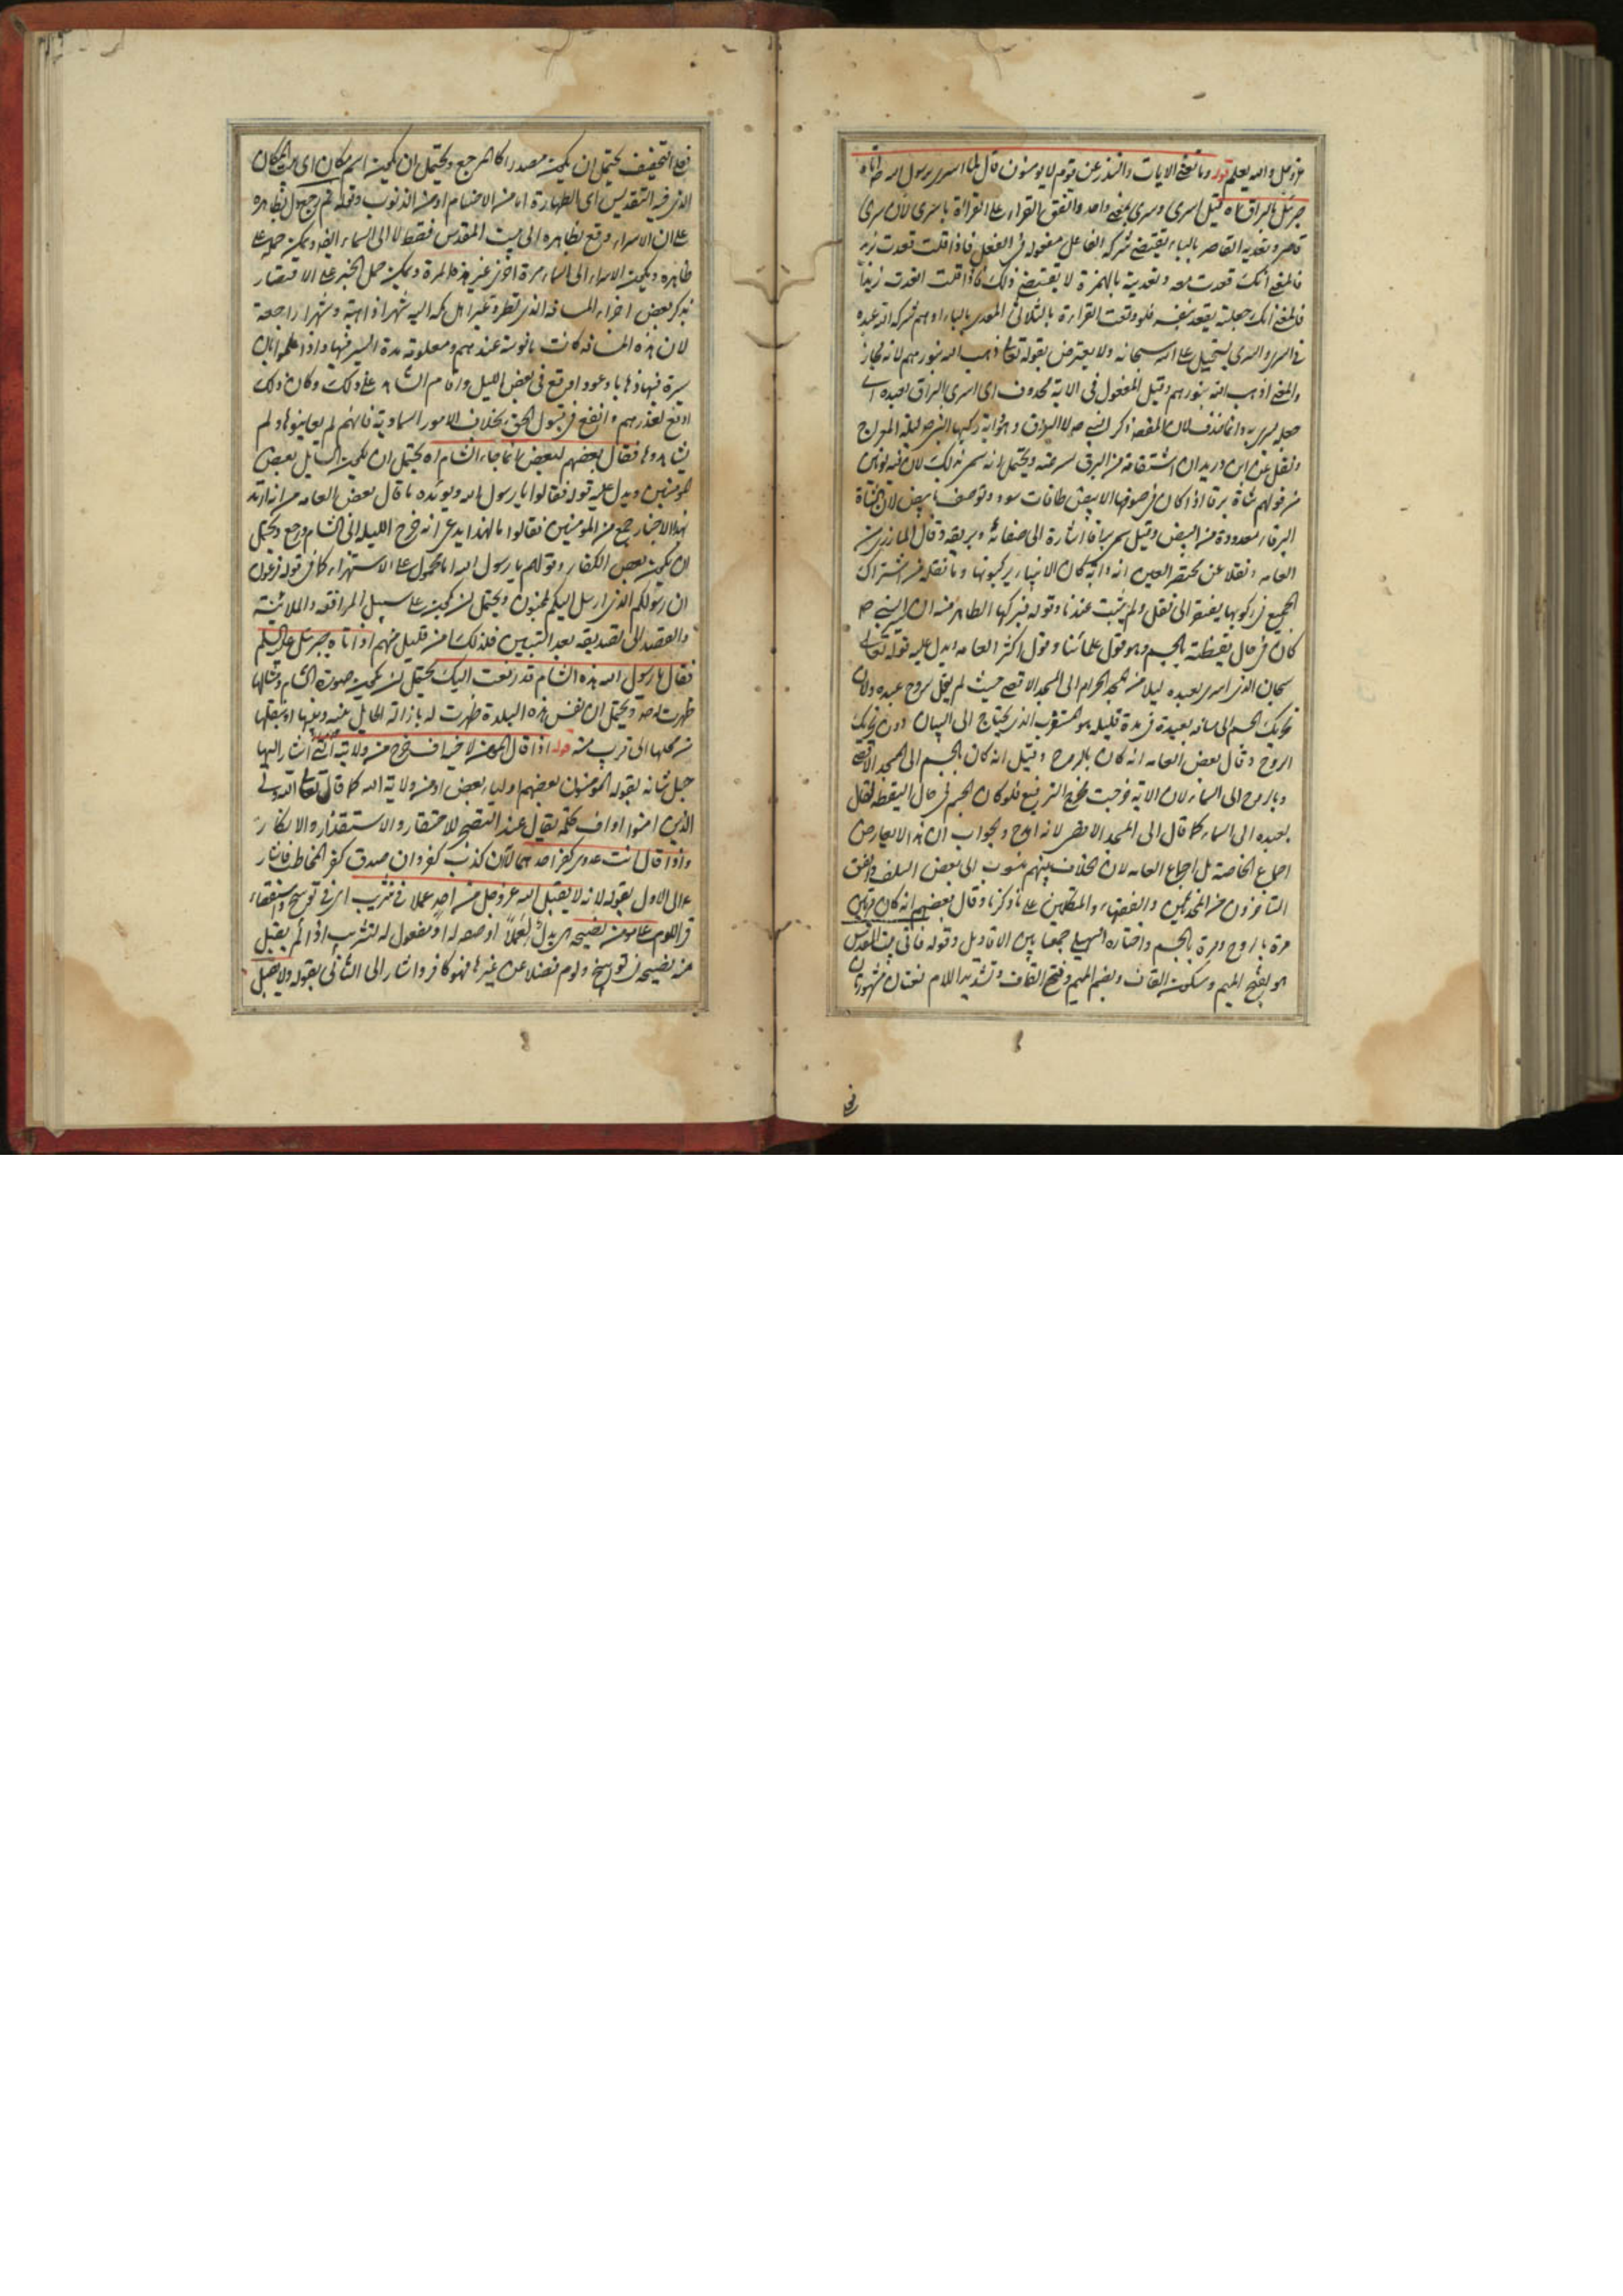 عز وجل والله يعلم قوله وما تغنى الآيات والنذر عن قوم لا يؤمنون قال لما اسرى برسول الله ص اتاه
جبرئيل بالبراق اه قيل اسرى وسرى بمعنى واحد واتفق القراء على القراءة باسرى لان سرى
قاصر وتعدية القاصر بالباء يقتضى شركة الفاعل مفعوله فى الفعل فاذا قلت قعدت بزيد
فالمعنى انك قعدت معه وتعدية بالهمزة لا يقتضى ذلك فاذا قلت اقعدت زيدا
فالمعنى انك جعلته يقعد بنفسه فلو وقعت القراءة بالثلاثى المعدى بالباء اوهم شركة الله عبده
فى السرى والسرى يستحيل على الله سبحانه ولا يعترض بقوله تعالى ذهب الله بنورهم لانه مجاز
والمعنى اذهب الله بنورهم وقيل المفعول فى الآية محذوف اى اسرى البراق بعبده اى
جعله يسرى به وانما حذف لان المقصد ذكر النبى ص لا البراق وهو دابة ركبها النبى ص ليلة المعراج
ونقل عن ابن دريد ان اشتقاقه من البرق لسرعته ويحتمل انه سمى بذلك لان فيه لونين
من قولهم شاة برقا اذا كان فى صوفها الابيض طاقات سود وتوصف بابيض لان الشاة
البرقاء معدودة من البيض وقيل سمى براقا اشارة الى صفائه وبريقه وقال المازرى من
العامة ونقلا عن مختصر العين انه دابة كان الانبياء يركبونها وما نقله من اشتراك
الجميع فى ركوبها يفتقر الى نقل ولم يثبت عندنا وقوله فركبها الظاهر منه ان النبى ص
كان فى حال يقظته بالجسم وهو قول علمائنا وقول اكثر العامة ويدل عليه قوله تعالى
سبحان الذى اسرى بعبده ليلا من المسجد الحرام الى المسجد الاقصى حيث لم يقل بروح عبده ولان
تحريك الجسم الى مسافة بعيدة فى مدة قليلة هو المستغرب الذى يحتاج الى البيان دون تحريك
الروح وقال بعض العامة انه كان بالروح وقيل انه كان بالجسم الى المسجد الاقصى
وبالروح الى السماء لان الآية خرجت مخرج الترفيع فلو كان الجسم فى حال اليقظة لقال
بعبده الى السماء كما قال الى المسجد الاقصى لانه امدح والجواب ان هذا لا يعارض
اجماع الخاصة بل اجماع العامة لان الخلاف بينهم منسوب الى بعض السلف واتفق
المتأخرون من المحدثين والفقهاء والمتكلمين على ما ذكرنا وقال بعضهم انه كان مرتين
مرة بالروح ومرة بالجسم واختاره السهيلى جمعا بين الاقاويل وقوله فاتى بيت المقدس
هو بفتح الميم وسكون القاف وبضم الميم وفتح القاف وتشديد اللام لغتان مشهورتان
فعلى
فعلى التخفيف يحتمل ان يكون مصدرا كالمرجع ويحتمل ان يكون اسم مكان اى بيت المكان
الذى فيه التقديس اى الطهارة اما من الاصنام او من الذنوب وقوله ثم رجع يدل بظاهره
على ان الاسراء وقع بظاهره الى بيت المقدس فقط لا الى السماء ايضا ويمكن حمله على
ظاهره ويكون الاسراء الى السماء مرة اخرى غير هذه المرة ويمكن حمل الخبر على الاقتصار
بذكر بعض اجزاء المسافة الذى تطرقه عير اهل مكة اليه شهرا ذاهبة وشهرا راجعة
لان هذه المسافة كانت مأنوسة عندهم ومعلومة مدة السير فيها واذا علموا بان
سيره فيها ذهابا وعودا وقع فى بعض الليل واقام الشاهد على ذلك وكان ذلك
اوقع لعذرهم وانفع فى قبول الحق بخلاف الامور السماوية فانهم لم يعاينوها ولم
يشاهدوها فقال بعضهم لبعض انما جاء الشام اه يحتمل ان يكون القايل بعض
المؤمنين ويدل عليه قوله فقالوا يا رسول الله ويؤيده ما قال بعض العامة من انه ارتد
بهذا الاخبار جمع من المؤمنين فقالوا ما لهذا يدعى انه خرج الليلة الى الشام ورجع ويحتمل
ان يكون بعض الكفار وقولهم يا رسول الله اما محمول على الاستهزاء كما فى قوله فرعون
ان رسولكم الذى ارسل اليكم لمجنون ويحتمل ان يكون على سبيل المرافقة والملاينة
والقصد الى تصديقه بعد التبيين فلذلك امن قليل منهم اذ اتاه جبرئيل عليه السلم
فقال يا رسول الله هذه الشام قد رفعت اليك يحتمل ان يكون صورة الشام ومثالها
ظهرت له ص ويحتمل ان نفس هذه البلدة ظهرت له بازالة الحايل بينه وبينها او بنقلها
من محلها الى قريب منه قوله اذا قال المؤمن لاخيه اف خرج من ولايته التى اشار اليها
جل شانه بقوله المؤمنون بعضهم اولياء بعض او من ولاية الله كما قال تعالى الله ولى
الذين امنوا واف كلمة تقال عند التضجر للاحتقار والاستقذار والانكار
واذا قال انت عدوى كفر احدهما لانه ان كذب كفر وان صدق كفر المخاطب فاشار
الى الاول بقوله لانه لا يقبل الله عز وجل من احد عملا فى تثريب اى فى توبيخ واستقصاء
فى اللوم على مؤمن نصيحة اى بدل لعملا او صفة له او مفعول له لتثريب اذا لم يقبل
منه نصيحة فى توبيخ ولوم فضلا عن غيرها فهو كافر واشار الى الثانى بقوله ولا يقبل